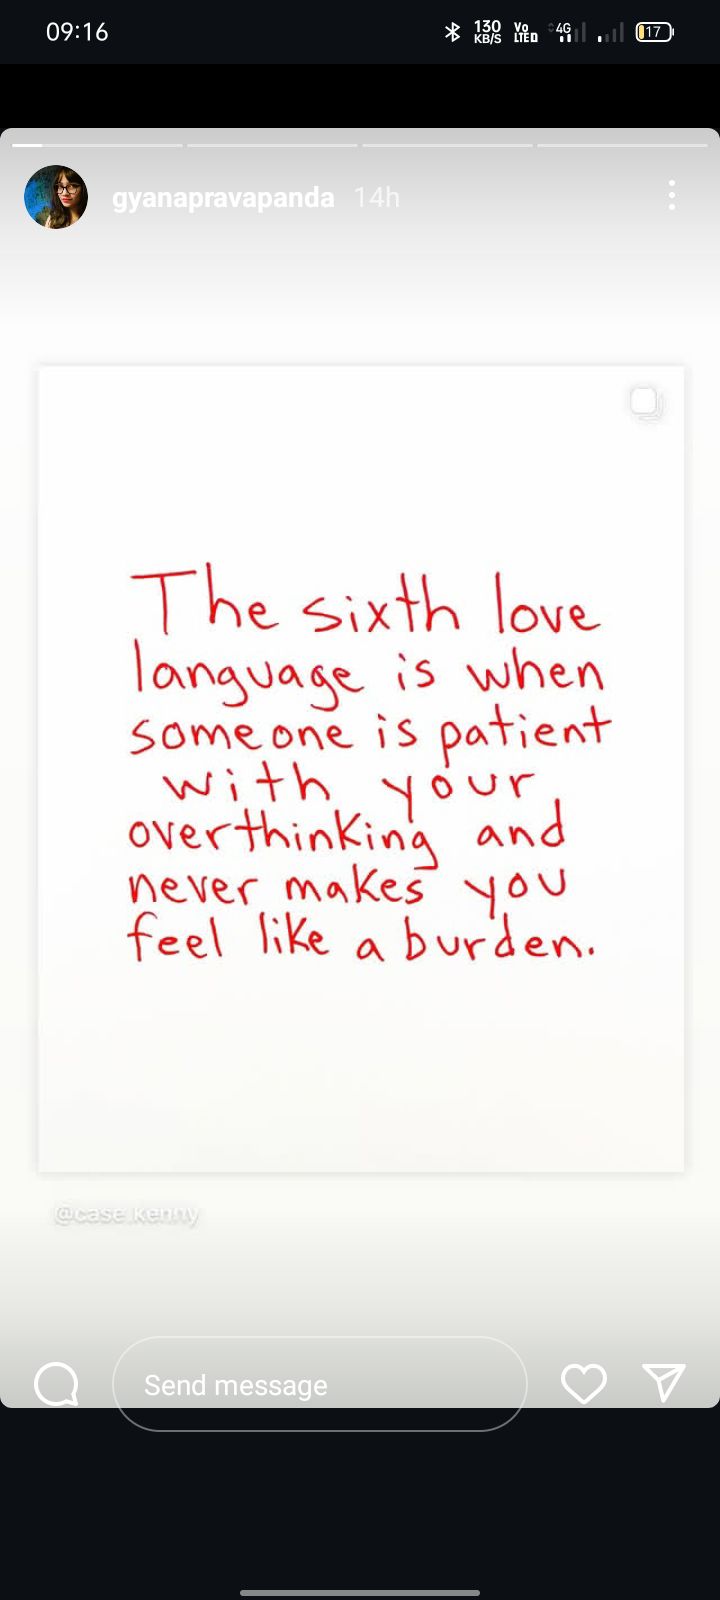 09:16
130
KB/S
Vo
LTE
4G
17
gyanapravapanda 14h
The sixth love
language is when
someone is patient
with your
overthinking and
never makes you
feel like a burden.
@case.kenny
Send message